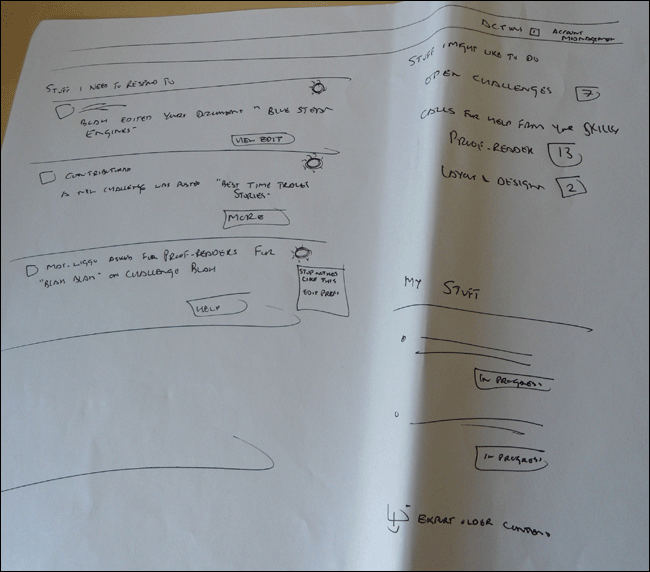 ACCOUNT
MANAGEMENT
STUFF I NEED TO RESPOND TO
BLAH EDITED YOUR DOCUMENT "BLUE STEAM
ENGINES"
VIEW EDIT
CONTRIBUTIONS
A NEW CHALLENGE WAS ADDED "BEST TIME TRAVEL
STORIES"
MORE
ASKED FOR PROOF-READERS FOR
"BLAH BLAH" ON CHALLENGE BLAH
STOP NOTICES
LIKE THIS
EDIT PREFS
HELP
STUFF I MIGHT LIKE TO DO
OPEN CHALLENGES 7
CALLS FOR HELP FROM YOUR SKILLS
PROOF-READER 13
LAYOUT & DESIGN 2
MY STUFF
IN PROGRESS
IN PROGRESS
EXPORT OLDER CONTENT